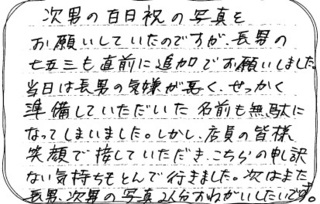 次男の百日祝の写真を
お願いしていたのですが、長男の
七五三も直前に追加でお願いしました。
当日は長男の気嫌が悪く、せっかく
準備していただいた名前も無駄に
なってしまいました。しかし、店員の皆様
笑顔で接していただき、こちらの申し訳
ない気持ちもとんで行きました。次はまた
長男、次男の写真2人分おねがいしたいです。